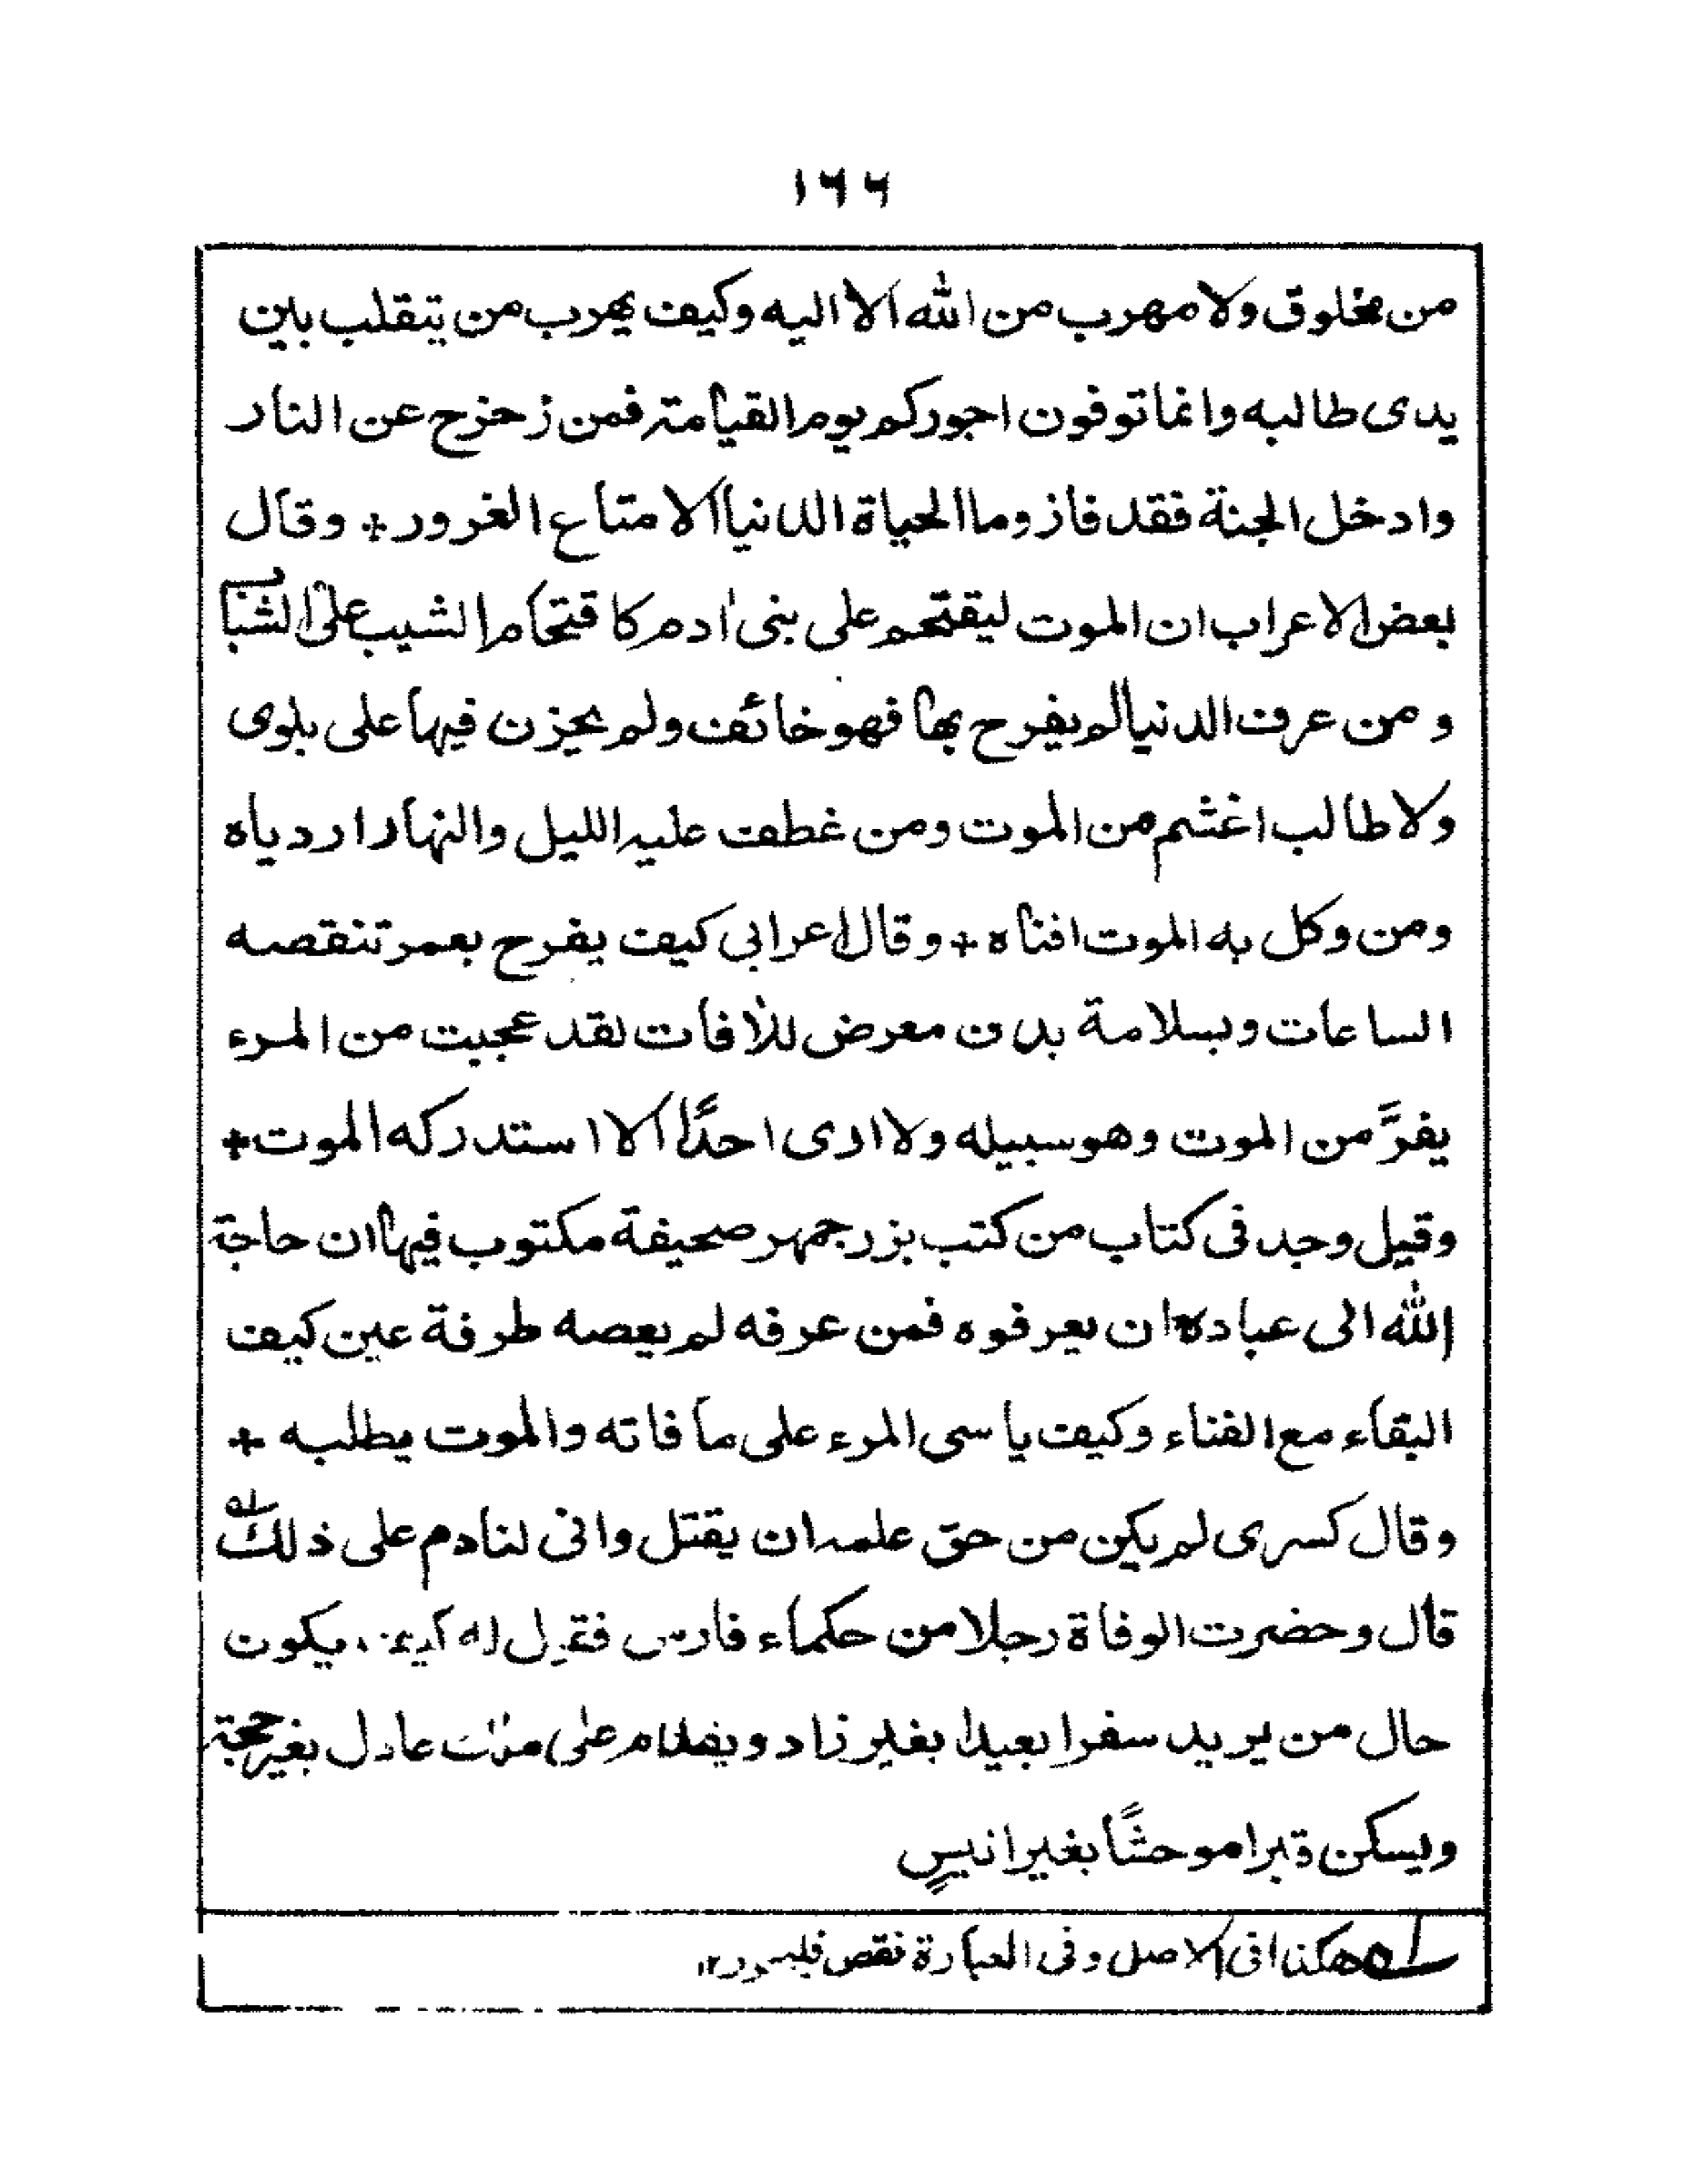 ١٦٦
من مخلوق ولا مهرب من الله الا اليه وكيف يهرب من يتقلب بين
يدى طالبه وانما توفون اجوركم يوم القيامة فمن زحزح عن النار
وادخل الجنة فقد فاز وما الحياة الدنيا الا متاع الغرور + وقال
بعض الاعراب ان الموت ليقتحم على بنى اٰدم كاقتحام الشيب على الشباب
ومن عرف الدنيا لم يفرح بها فهو خائف ولم يحزن فيها على بلوى
ولا طالب اغشم من الموت ومن غطف عليه الليل والنهار ارديااه
ومن وكل به الموت افناه + وقال اعرابى كيف يفرح بعمر تنقصه
الساعات وبسلامة بدن معرض للاٰفات لقد عجبت من المرء
يفرَّ من الموت وهو سبيله ولا ارى احدًا الا استدركه الموت +
وقيل وجد فى كتاب من كتب بزرجمهر صحيفة مكتوب فيها ان حاجة
الله الى عباده ان يعرفوه فمن عرفه لم يعصه طرفة عين كيف
البقاء مع الفناء وكيف ياسى المرء على ما فاته والموت يطلبه +
وقال كسرى لم يكن من حق علمه ان يقتل وانى لنادم على ذلك ؎
قال وحضرت الوفاة رجلا من حكماء فارس فقيل له كيف يكون
حال من يريد سفرا بعيدا بغير زاد ويقدم على ملك عادل بغير حجة
ويسكن قبرا موحشًا بغير انيسٍ
؎ هكذا فى الاصل وفى العبارة نقص ١٢